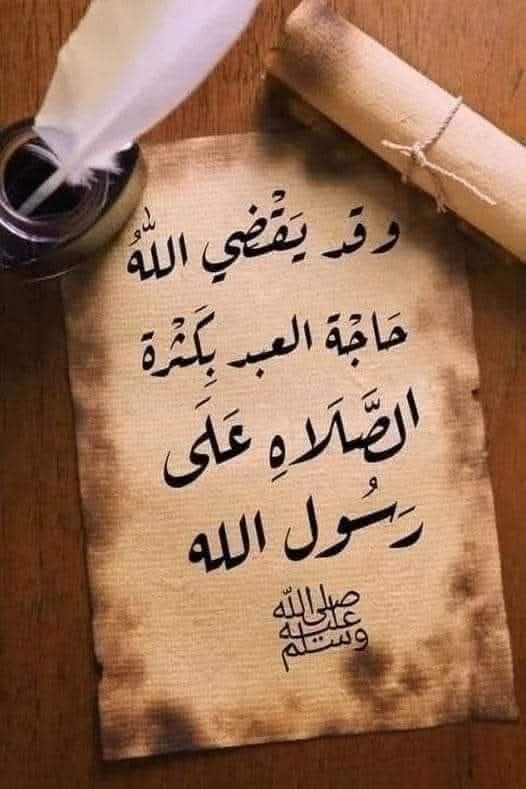 وقد يَقْضي اللّهُ
حَاجْة العبد بِكَثْرة
الصَّلَاهِ عَلَى
رَسُول الله
صلى الله عليه وسلم